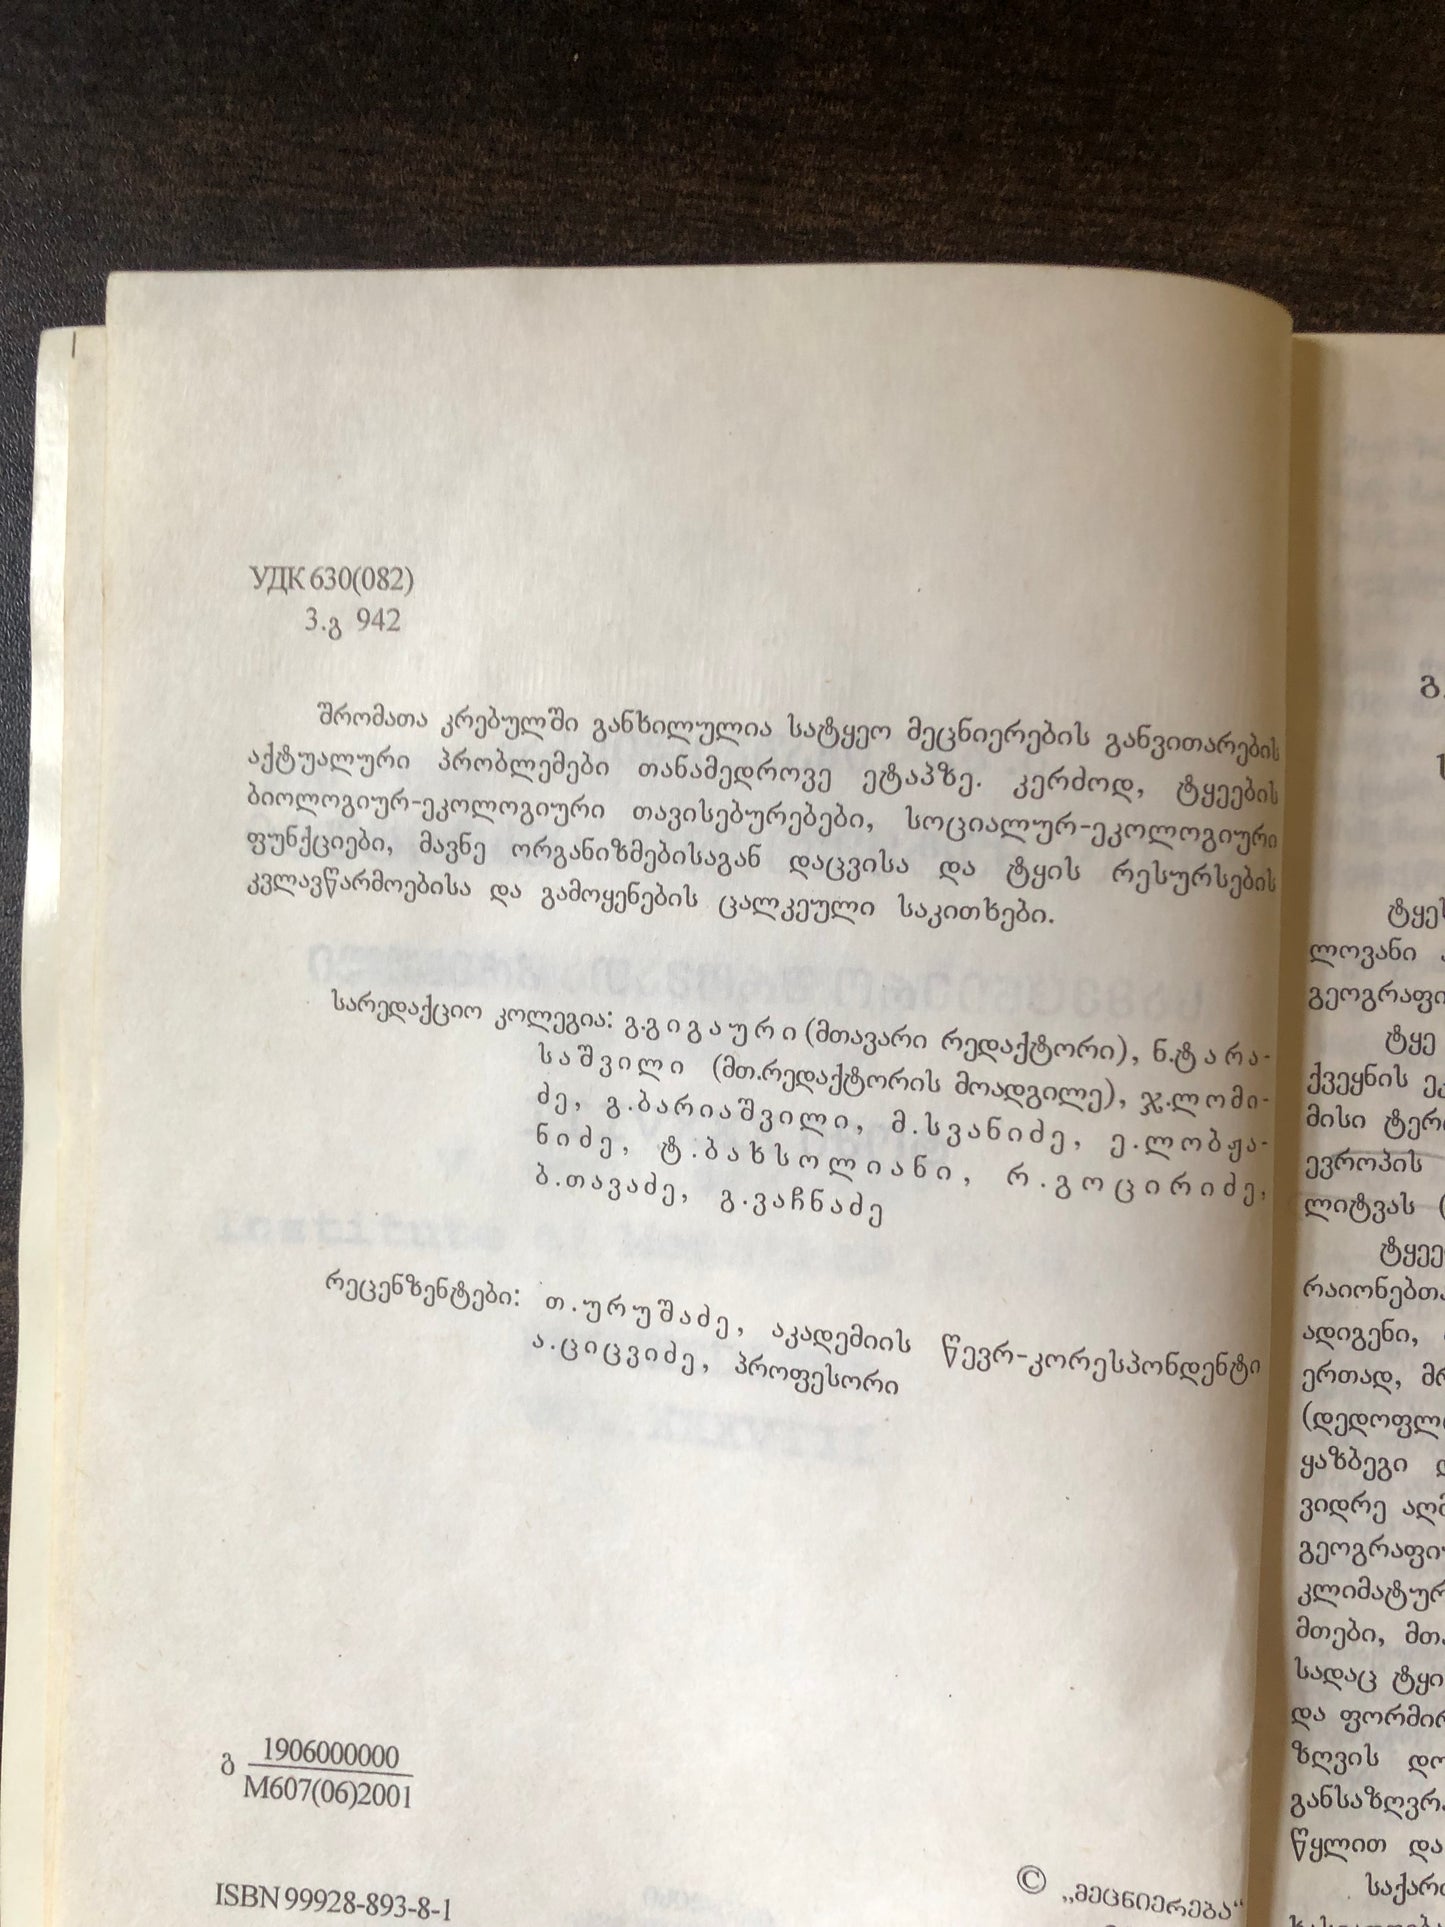 УДК 630(082)
3.გ 942
შრომათა კრებულში განხილულია სატყეო მეცნიერების განვითარების
აქტუალური პრობლემები თანამედროვე ეტაპზე. კერძოდ, ტყეების
ბიოლოგიურ-ეკოლოგიური თავისებურებები, სოციალურ-ეკოლოგიური
ფუნქციები, მავნე ორგანიზმებისაგან დაცვისა და ტყის რესურსების
კვლავწარმოებისა და გამოყენების ცალკეული საკითხები.
სარედაქციო კოლეგია: გ.გიგაური (მთავარი რედაქტორი), ნ.ტარა-
საშვილი (მთ.რედაქტორის მოადგილე), ჯ.ლომი-
ძე, გ.ბარიაშვილი, მ.სვანიძე, ე.ლობჟა-
ნიძე, ტ.ბახსოლიანი, რ.გოცირიძე,
ბ.თავაძე, გ.ვაჩნაძე
რეცენზენტები: თ.ურუშაძე, აკადემიის წევრ-კორესპონდენტი
ა.ციცვიძე, პროფესორი
გ 1906000000
M607(06)2001
ISBN 99928-893-8-1
© „მეცნიერება“
ლოვანი
ტყე
ქვეყნის
მისი
ევროპის
ლიტვას (
ადიგენი,
ერთად,
ყაზბეგი
ვიდრე
მთები,
სადაც
და
ზღვის
წყლით და